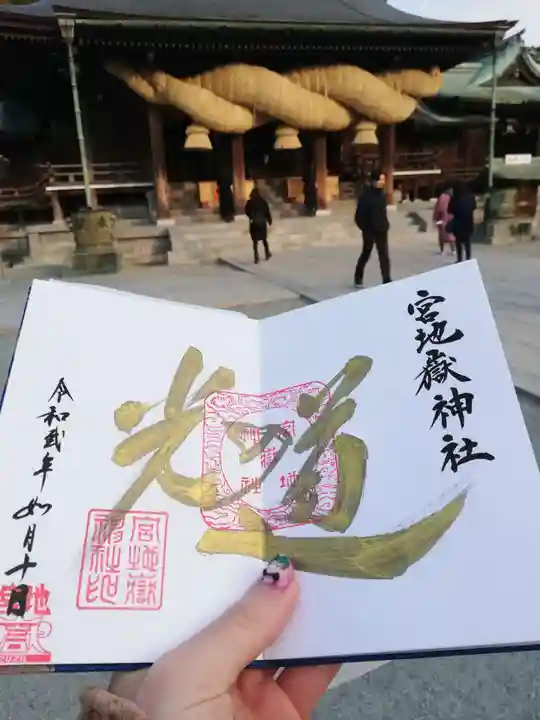 宮地嶽神社
光の道
宮地嶽神社
宮地嶽神社印
令和弐年如月十日
2020